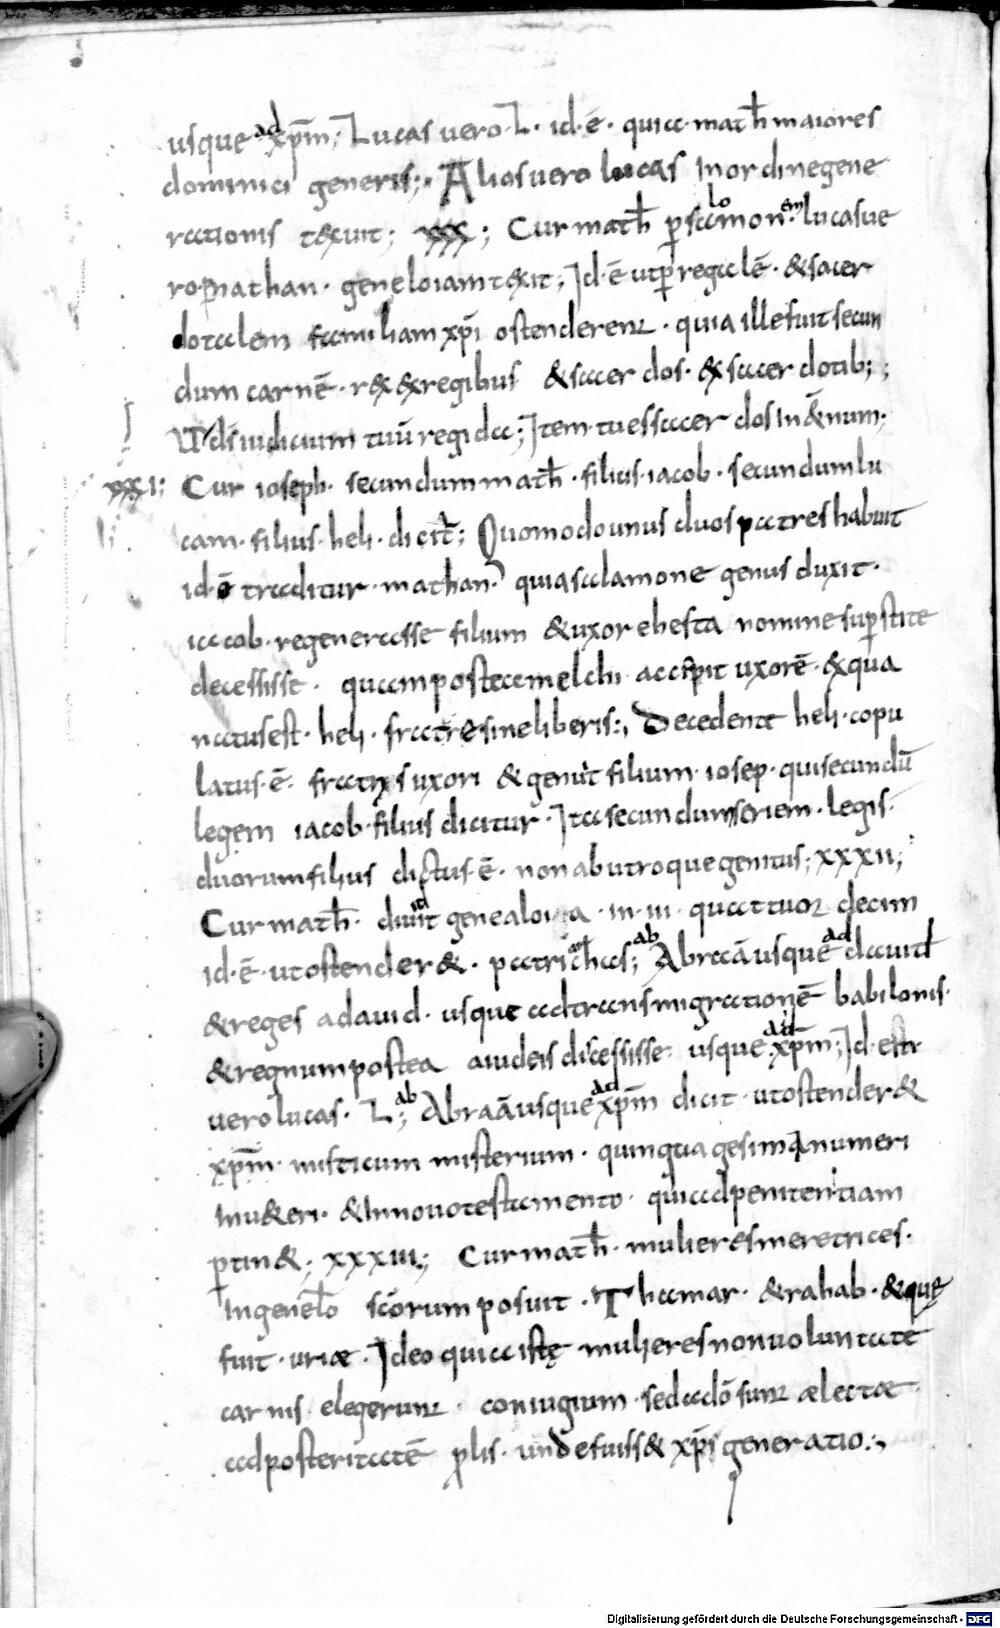 usque ad xp̄m; Lucas uero L· id·ē· quia·math̄ maiores
dominici generis;· Alios uero lucas In ordine gene
rationis texuit; xxx; Cur math̄ p̄ salomonem· lucas ue
ro p̄ nathan· geneloiam texit; Id·ē ut p̄ regalē· & sacer
dotalem familiam xp̄i ostenderent· quia ille fuit secun
dum carnē· rex ex regibus & sacerdos· ex sacerdotib;;
Vt d̄s iudicium tuū regi da; Item tu es sacerdos In &̄num·
xxxi; Cur ioseph· secundum math̄· filius·iacob· secundum lu
cam· filius·heli· dicit̄; Quomodo unus duos patres habuit
id·ē traditur·mathan· quia salamone genus duxit·
iacob·regenerasse filium & uxor ehesta nomine sup̄stite
decessisse· quam postea melchi accepit uxorē· ex qua
natus est· heli· fratre sine liberis:, Decedente heli·copu
latus·ē· fratris uxori & genuit filium·iosep·qui secundū
legem iacob·filius dicitur· Ita secundum seriem·legis·
duorum filius dictus·ē· non ab utroque genitus; xxxii;
Cur math̄· diuidit genealoia·in·iii· quattuor decim
id·ē·ut ostender&· patriarchas; ab Abraā usque ad dauid
& reges a dauid· usque ad transmigrationē babilonis·
& regnum postea a iudeis discessisse· usque·ad xp̄m; Id·est
uero lucas· L; ab Abraā usque ad xp̄m dicit·ut ostender&
xp̄m· misticum misterium· quinquagesima numeri
In u&eri· & In nouo testamento· qui ad penitentiam
p̄tin&; xxxiii; Cur math̄· mulieres meretrices·
In genelō scōrum posuit· Thamar· & rahab· & quę
fuit·uriae· Ideo quia istę mulieres non uoluntate
carnis elegerunt· coniugium·sed a dō sunt aelectae·
ad posteritatē prolis· unde fuiss& xp̄i generatio:,
Digitalisierung gefördert durch die Deutsche Forschungsgemeinschaft - DFG